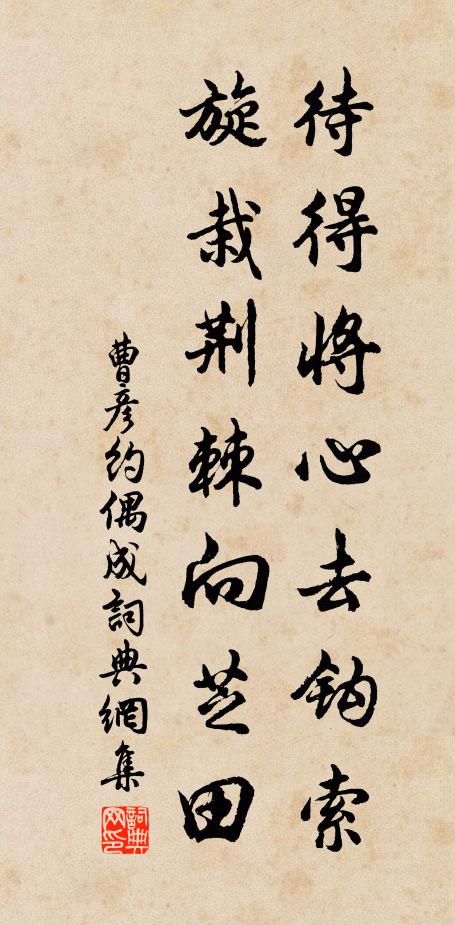 待得將心去鈎索
旋栽荆棘向芝田
曹彦約偶成詞典網集
詞典網印